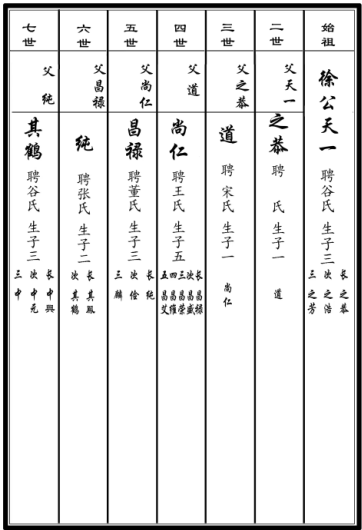 始祖
徐公天一
聘谷氏 生子三
长之恭
次之浩
三之芳
二世
父天一
之恭
聘 氏 生子一
道
三世
父之恭
道
聘宋氏 生子一
尚仁
四世
父道
尚仁
聘王氏 生子五
长昌禄
次昌盛
三昌荣
四昌維
五昌艾
五世
父尚仁
昌禄
聘董氏 生子三
长純
次佺
三麟
六世
父昌禄
純
聘张氏 生子二
长其鳳
次其鶴
七世
父純
其鶴
聘谷氏 生子三
长中興
次中元
三中